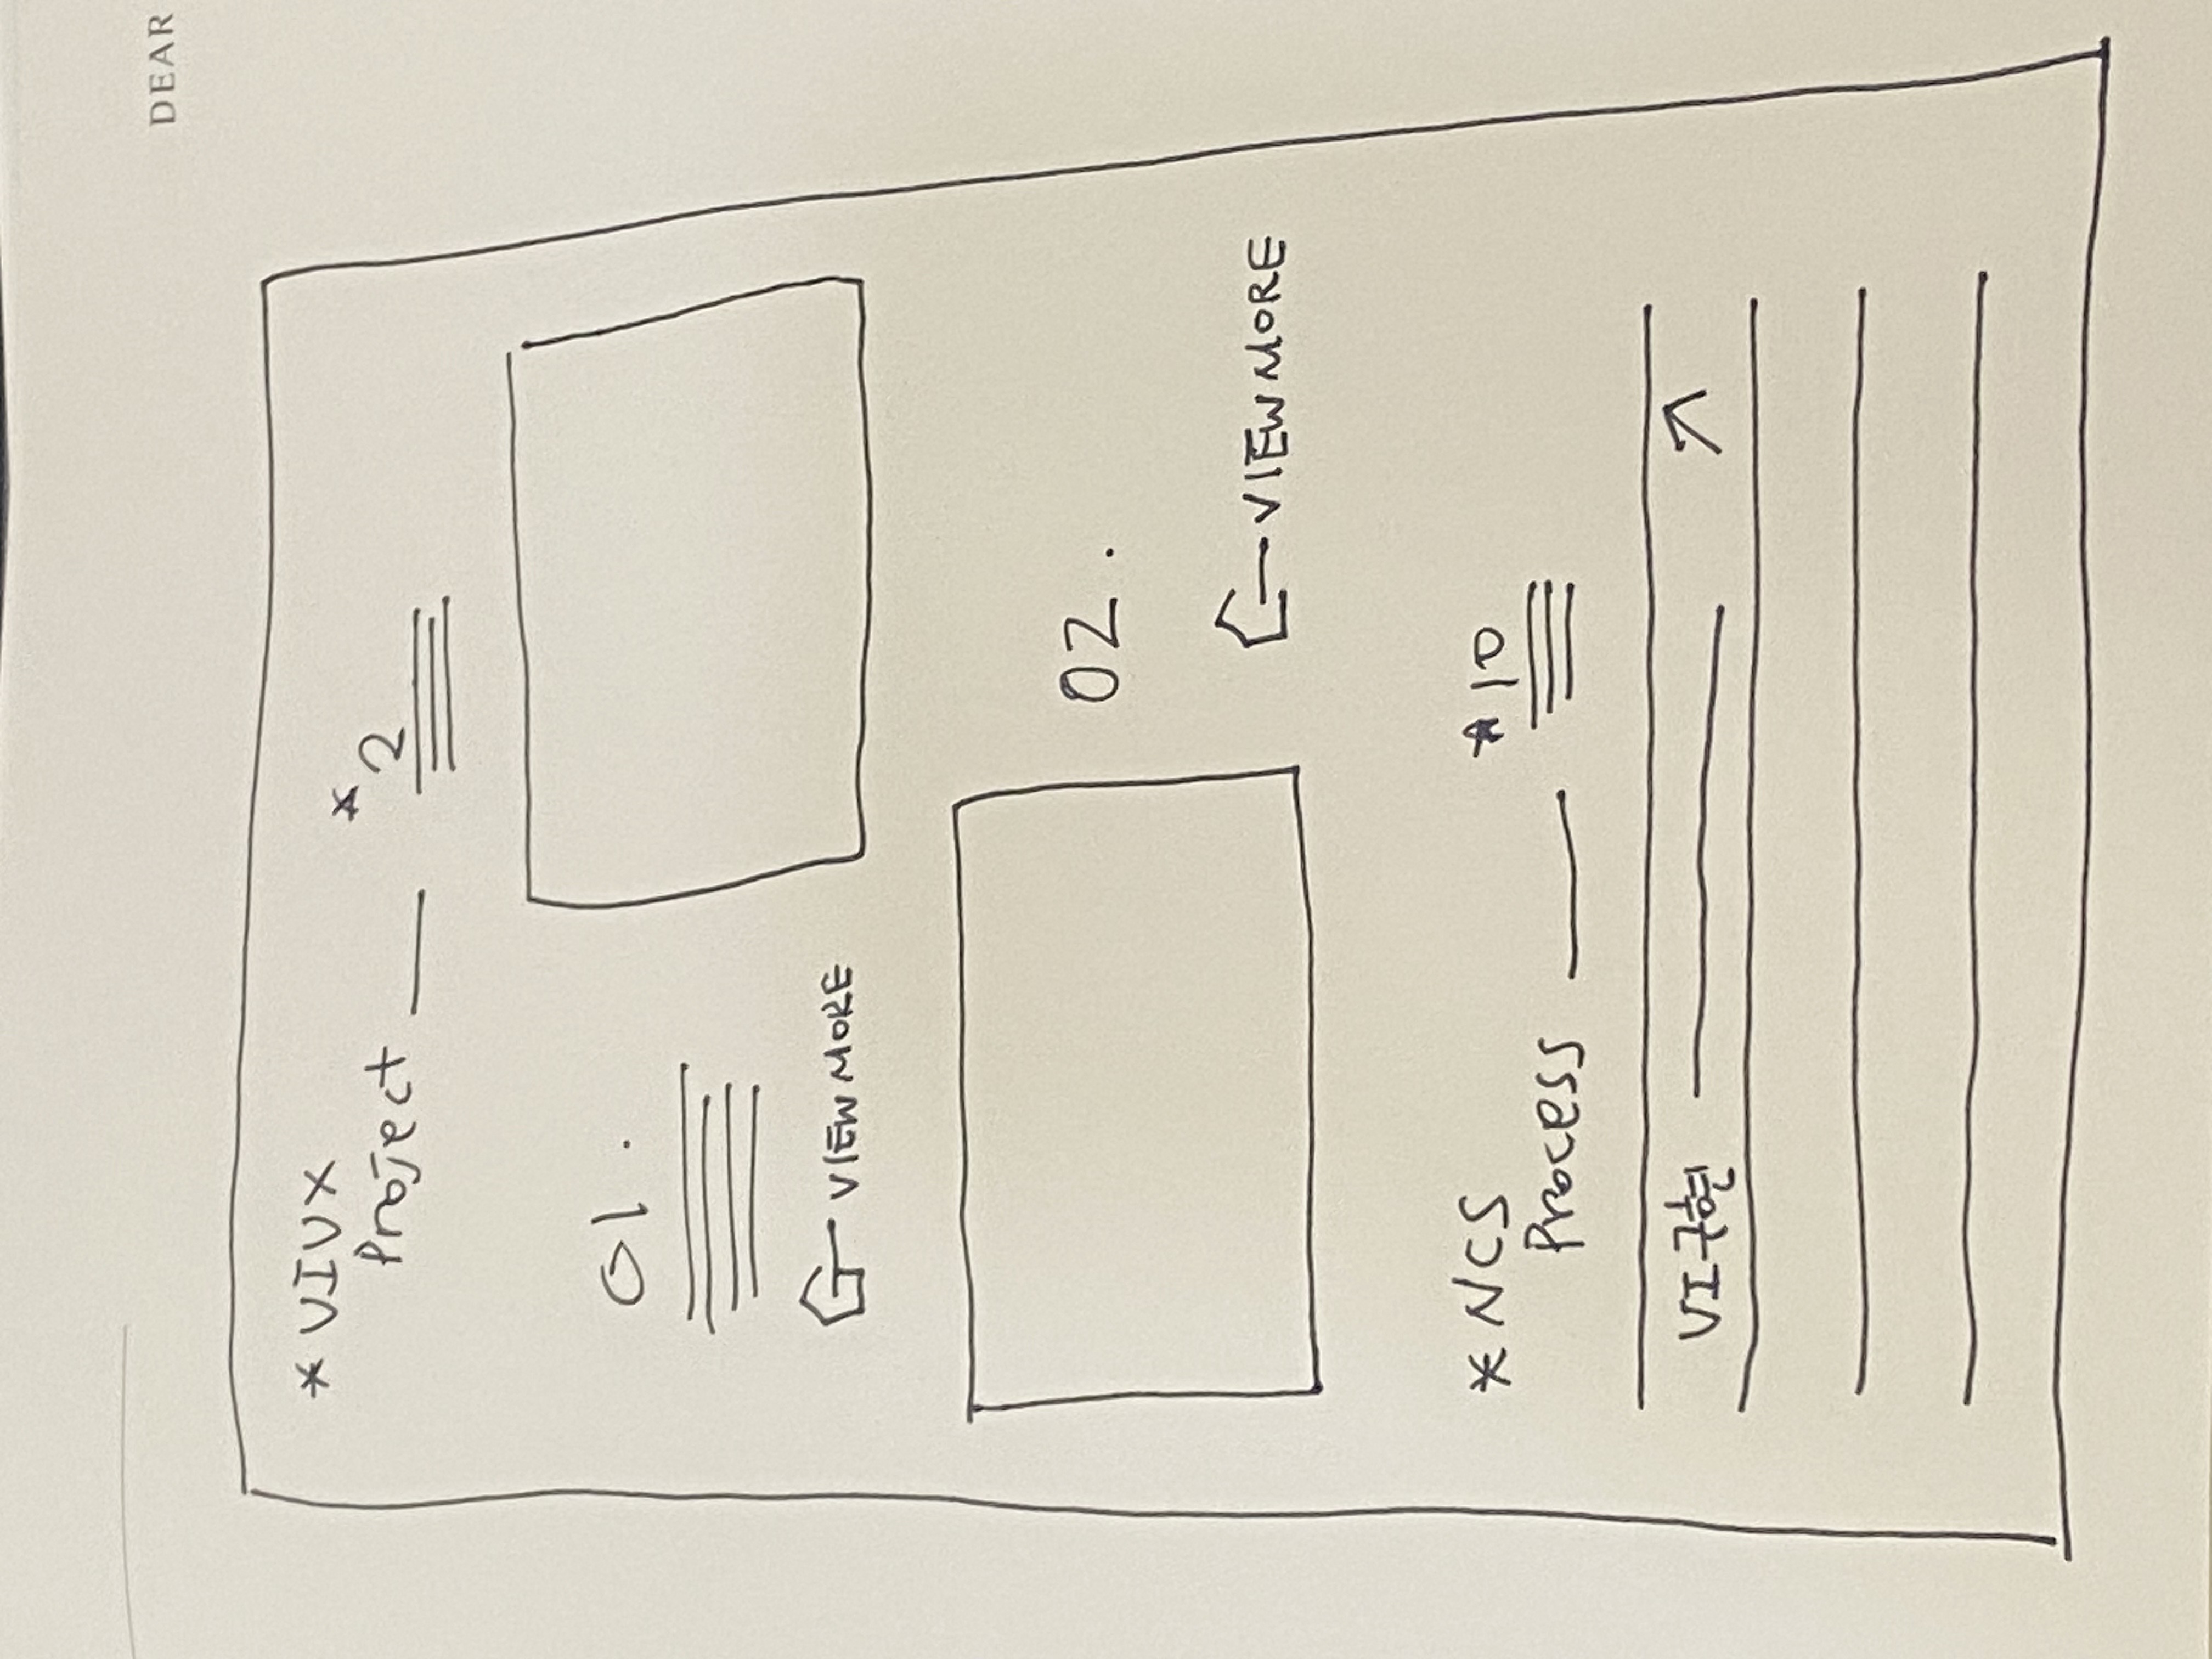 DEAR
* VIUX
Project
* 2
01.
VIEW MORE
02.
VIEW MORE
* NCS
Process
* 10
VI구현